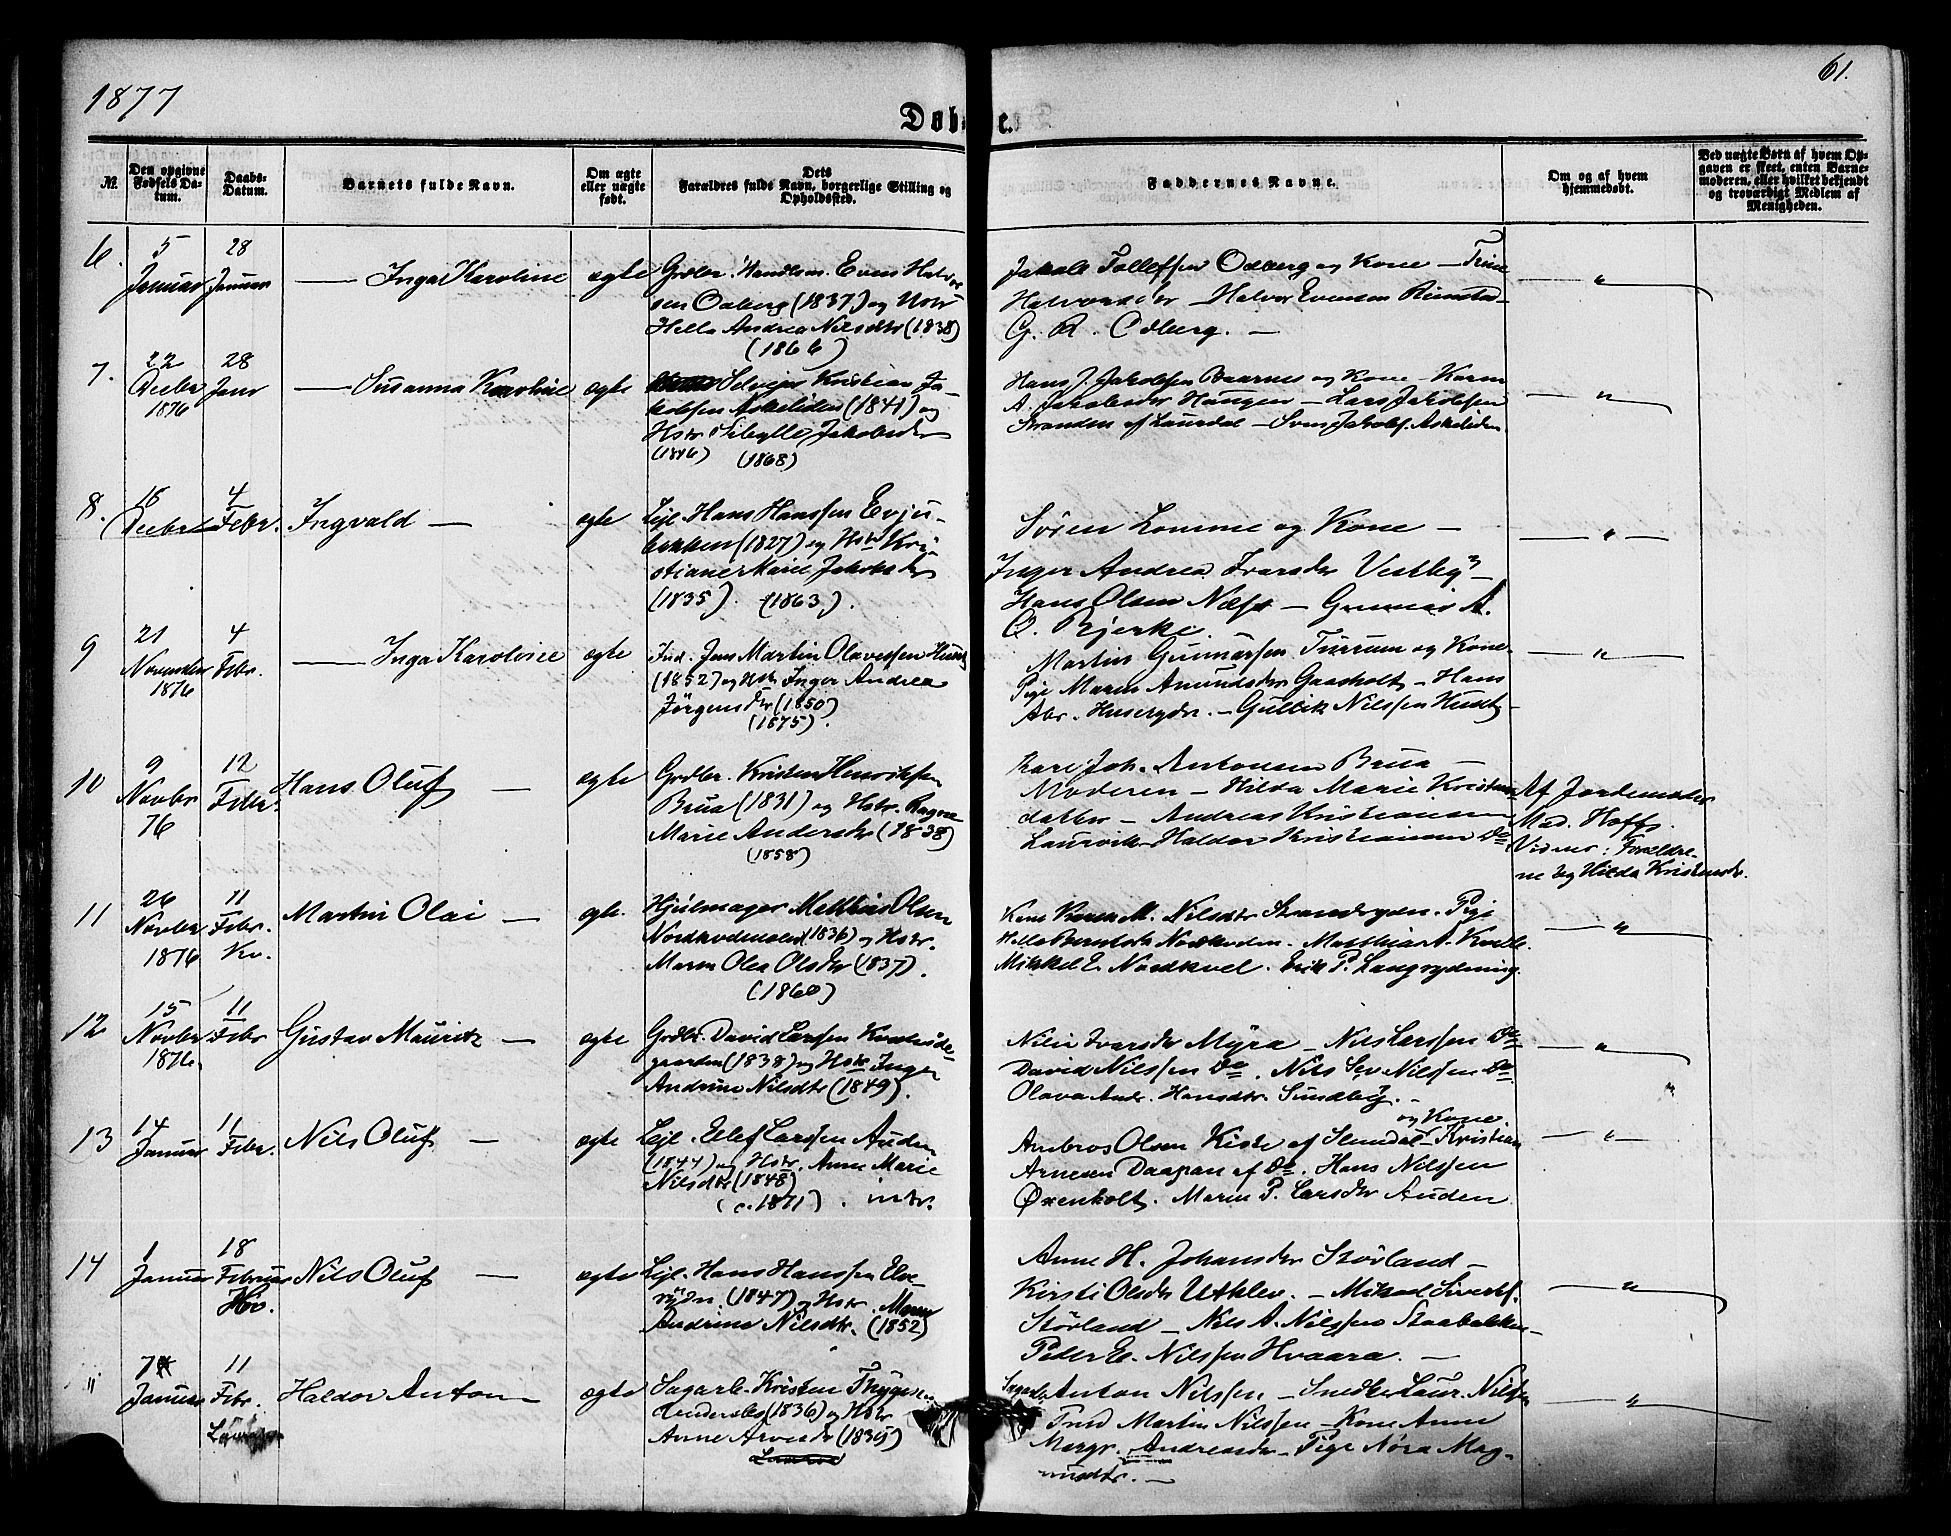 1877
61.
Døbte.
№.
Den opgivne Fødsels Datum.
Daabs-Datum.
Barnets fulde Navn.
Om ægte eller uægte født.
Dets Forældres fulde Navn, borgerlige Stilling og Opholdssted.
Faddernes Navne.
Om og af hvem hjemmedøbt.
Ved uægte Børn af hvem Opgaven er skeet, enten Barnemoderen, eller hvilket bekjendt og troværdigt Medlem af Menigheden.
6.
5 Januar
28 Januar
— Inga Karoline
ægte
Grdbr. Even Halvor-
sen Odberg (1837) og Hstr
Helle Andrea Nilsdtr (1838)
(1866)
Jakob Tollefsen Odberg og Kone — Trine
Halvorsdtr — Halvor Evensen
G. R. Odberg. —
— " —
7.
22 Decbr 1876
28 Janr
— Susanna Karoline
ægte
Selveier Kristian Ja-
kobsen Askeliden (1841) og
Hstr Sibylle Jakobsdr
(1846) (1868)
Hans J. Jakobsen Baarnes og Kone — Karen
A. Jakobsdr Haugen — Lars Jakobsen
Stranden af Laurdal — Sven Jakobs. Askeliden
— " —
8.
18 Decbr
4 Febr.
Ingvald —
ægte
Lejl. Hans Hanssen Evju-
bakken (1827) og Hstr Kri-
stiane Marie Jakobsdr
(1835). (1863).
Sören Lomme og Kone —
Inger Andrea Ivarsdr Vestby —
Hans Olsen Næss — Gunnar A.
O. Bjerke.
— " —
9
21 November 1876
4 Febr.
— Inga Karolvine
ægte
Ind. Jens Martin Olavessen Hundt
(1852) og Hstr Inger Andrea
Jörgensdr (1850)
(1875).
Martin Gunnarsen Furrum og Kone
Pige Maren Amundsdr Gaasholt — Hans
Abr. Huserydn. — Gullik Nilssen Hundt
— " —
10
9 Novbr 76
12 Febr.
Hans Oluf —
ægte
Grdbr. Kristen Henriksen
Brua (1831) og Hstr. Ragne
Marie Andersdr (1838)
(1858)
Karl Joh. Antonsen Brua —
Moderen — Hilda Marie Kristians
datter — Andreas Kristiansen
Laurvik — Haldor Kristiansen Do
Af Jordemoder
Mad. Hoffs.
Vidner: Forældre-
ne og Hilda Kristensdr.
11
26 Novbr 1876
11 Febr. Kv.
Martin Olai —
ægte.
Hjulmager Mathias Olsen
Nordkvelle (1836) og Hstr.
Maren Olea Olsdtr (1837).
(1860)
Kone Karen M. Nilsdtr Strandrydn. Pige
Helle Berntsdr Nordkveden. Matthias A. Kvelle
Mikkel E. Nordkvel. Erik P. Langrydning
— " —
12
15 Novbr 1876.
11 Febr
Gustav Mauritz —
ægte
Grdbr. David Larssen Kvelde-
gaarden (1838) og Hstr Inger
Andrine Nilsdtr (1849).
Nilia Ivarsdr Myra — Nils Larssen Do
David Nilssen Do. Nils Sev Nilssen Do
Olava Andr. Hansdtr. Sundby. —
— " —
13
14 Januar
11 Febr.
Nils Oluf —
ægte
Lejl. Ellef Larssen Auden
(1844) og Hstr. Anne Marie
Nilsdtr (1848)
(c. 1871). intr.
og Kone
Ambros Olsen Kiste af Slemdal — Kristian
Arnesen Daapan af Do. Hans Nilssen
Oxenholt. Maren P. Larsdtr Auden
— " —
14
1 Januar
18 Februar Hvs.
Nils Oluf —
ægte
Lejl. Hans Hanssen Elve-
rydn. (1847) og Hstr. Maren
Andrine Nilsdtr. (1852)
Anne H. Johansdtr Störland —
Kirsti Olsdr Uthlev. — Mikael Sivertsf.
Störland — Nils A. Nilssen Staabakken —
Peder E. Nilssen Hvaara. —
— " —
"
7 Januar
11 Febr.
Haldor Anton —
ægte
Sagarb. Kristen Thygesen
(1836) og Hstr
Anne Arvesdr (1839)
Anton Nilssen — Snedker Laur. Nilsen
Ind Martin Nilssen — Kone Anne
Margr. Andreasdr — Pige Nora Mag-
nusdtr. —
— " —